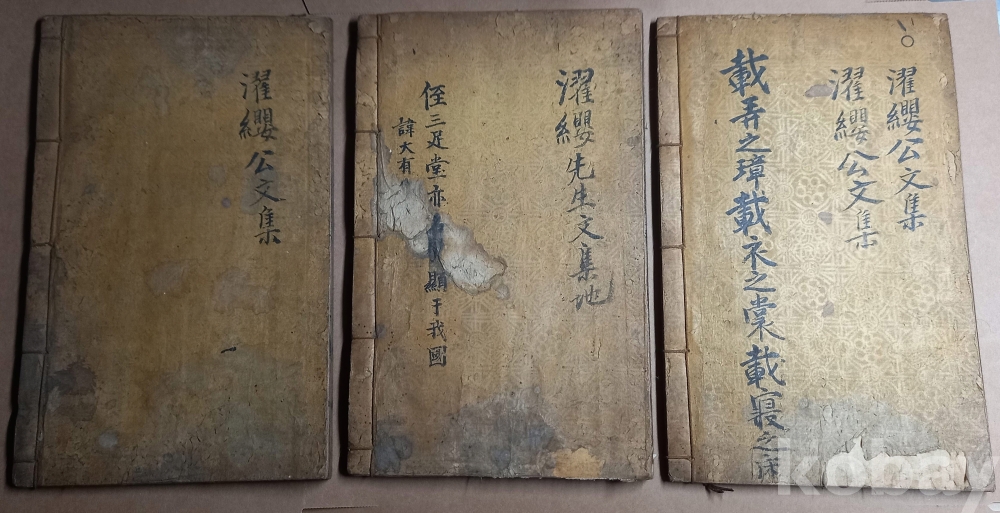 濯纓公文集
濯纓先生文集地
侄三足堂亦 顯于我國
諱大有
濯纓公文集
濯纓公文集
載弄之璋載衣之裳載寢之床
kobay